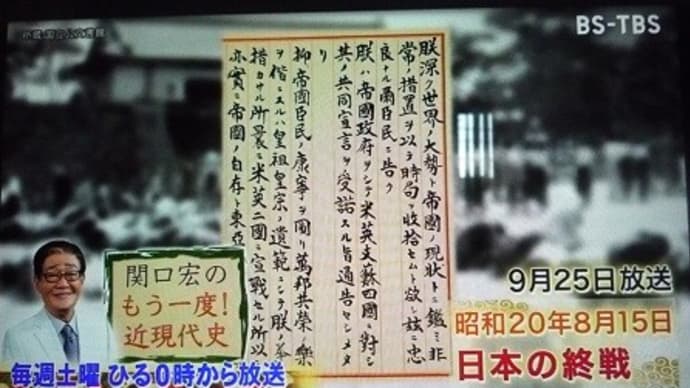 所蔵 国立公文書館
BS-TBS
朕深ク世界ノ大勢ト帝國ノ現状トニ鑑ミ非
常ノ措置ヲ以テ時局ヲ收拾セムト欲シ茲ニ忠
良ナル爾臣民ニ告ク
朕ハ帝國政府ヲシテ米英支蘇四國ニ對シ
其ノ共同宣言ヲ受諾スル旨通告セシメタ
リ
抑帝國臣民ノ康寧ヲ圖リ萬邦共榮ノ樂
ヲ偕ニスルハ皇祖皇宗ノ遺範ニシテ朕ノ拳
措カサル所曩ニ米英二國ニ宣戰セル所以
亦實ニ帝國ノ自存ト東亞
関口宏の
もう一度!
近現代史
毎週土曜 ひる0時から放送
9月25日放送
昭和20年8月15日
日本の終戦